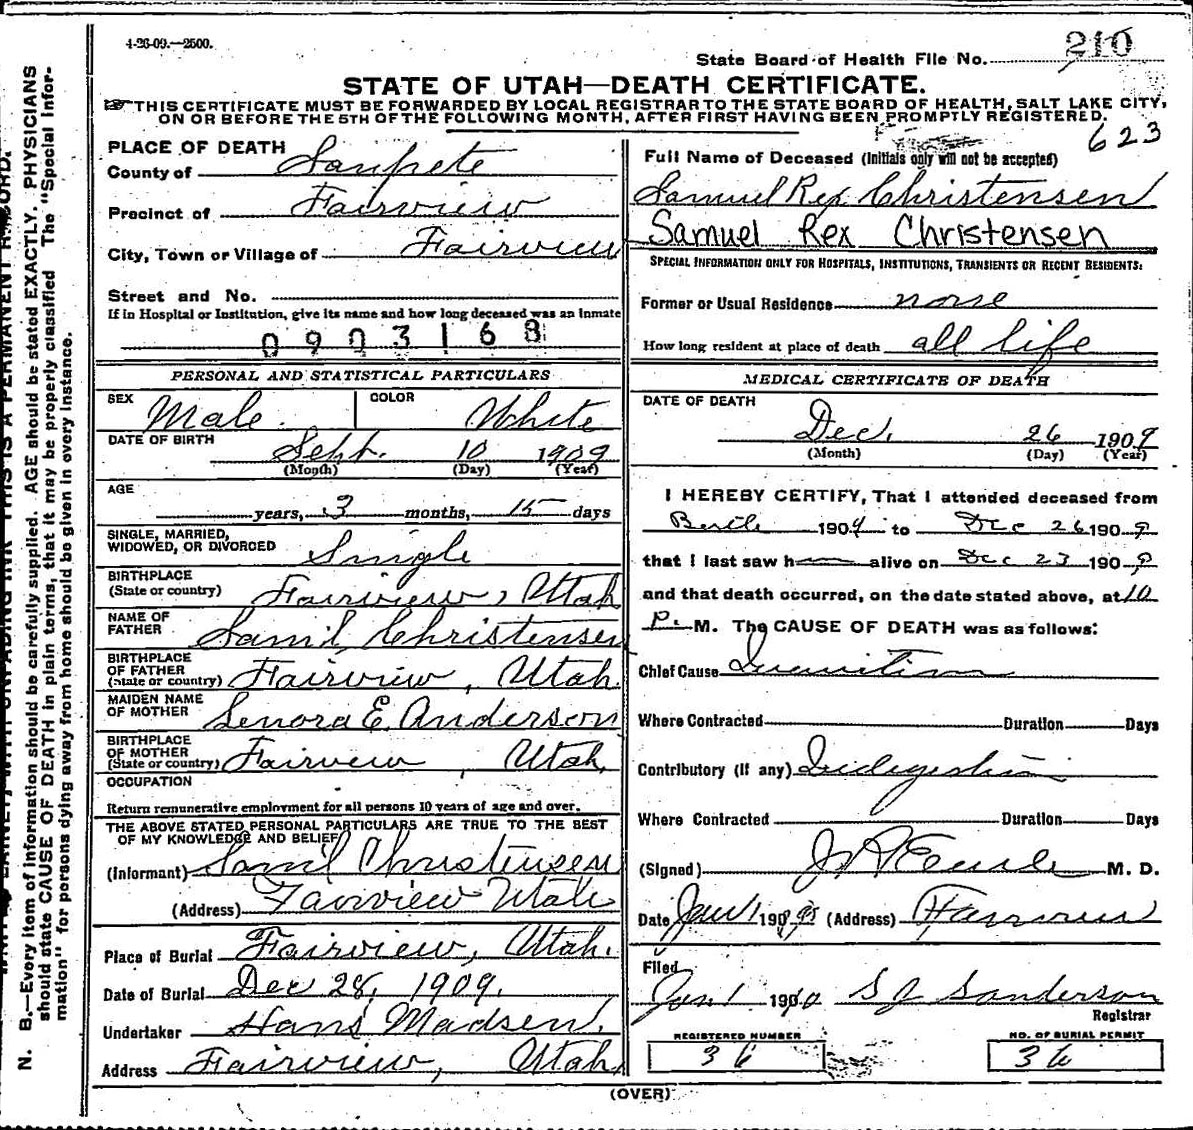 4-26-09.—2500.
State Board of Health File No. 210
STATE OF UTAH—DEATH CERTIFICATE.
THIS CERTIFICATE MUST BE FORWARDED BY LOCAL REGISTRAR TO THE STATE BOARD OF HEALTH, SALT LAKE CITY,
ON OR BEFORE THE 5TH OF THE FOLLOWING MONTH, AFTER FIRST HAVING BEEN PROMPTLY REGISTERED.
623
PLACE OF DEATH
County of Sanpete
Precinct of Fairview
City, Town or Village of Fairview
Street and No.
If in Hospital or Institution, give its name and how long deceased was an inmate
0903168
PERSONAL AND STATISTICAL PARTICULARS
SEX Male COLOR White
DATE OF BIRTH Sept. 10 1909
(Month) (Day) (Year)
AGE
years, 3 months, 15 days
SINGLE, MARRIED,
WIDOWED, OR DIVORCED Single
BIRTHPLACE
(State or country) Fairview, Utah
NAME OF
FATHER Saml. Christensen
BIRTHPLACE
OF FATHER
(State or country) Fairview, Utah.
MAIDEN NAME
OF MOTHER Senora E. Anderson
BIRTHPLACE
OF MOTHER
(State or country) Fairview, Utah.
OCCUPATION
Return remunerative employment for all persons 10 years of age and over.
THE ABOVE STATED PERSONAL PARTICULARS ARE TRUE TO THE BEST
OF MY KNOWLEDGE AND BELIEF
(Informant) Saml Christensen
(Address) Fairview Utah
Place of Burial Fairview, Utah.
Date of Burial Dec 28, 1909.
Undertaker Hans Madsen.
Address Fairview, Utah
Full Name of Deceased (Initials only will not be accepted)
Samuel Rex Christensen
Samuel Rex Christensen
SPECIAL INFORMATION ONLY FOR HOSPITALS, INSTITUTIONS, TRANSIENTS OR RECENT RESIDENTS:
Former or Usual Residence none
How long resident at place of death all life
MEDICAL CERTIFICATE OF DEATH
DATE OF DEATH
Dec. 26 1909
(Month) (Day) (Year)
I HEREBY CERTIFY, That I attended deceased from
Birth 1909 to Dec 26 1909
that I last saw h alive on Dec 23 1909
and that death occurred, on the date stated above, at 10
P. M. The CAUSE OF DEATH was as follows:
Chief Cause Inanition
Where Contracted Duration Days
Contributory (if any) Indigestion
Where Contracted Duration Days
(Signed) M. D.
Date Jan 1 190 (Address) Fairview
Filed
Jan 1 1910 S J Sanderson
Registrar
REGISTERED NUMBER
36
NO. OF BURIAL PERMIT
36
(OVER)
N. B.—Every item of information should be carefully supplied. AGE should be stated EXACTLY. PHYSICIANS
should state CAUSE OF DEATH in plain terms, that it may be properly classified. The "Special Infor-
mation" for persons dying away from home should be given in every instance.